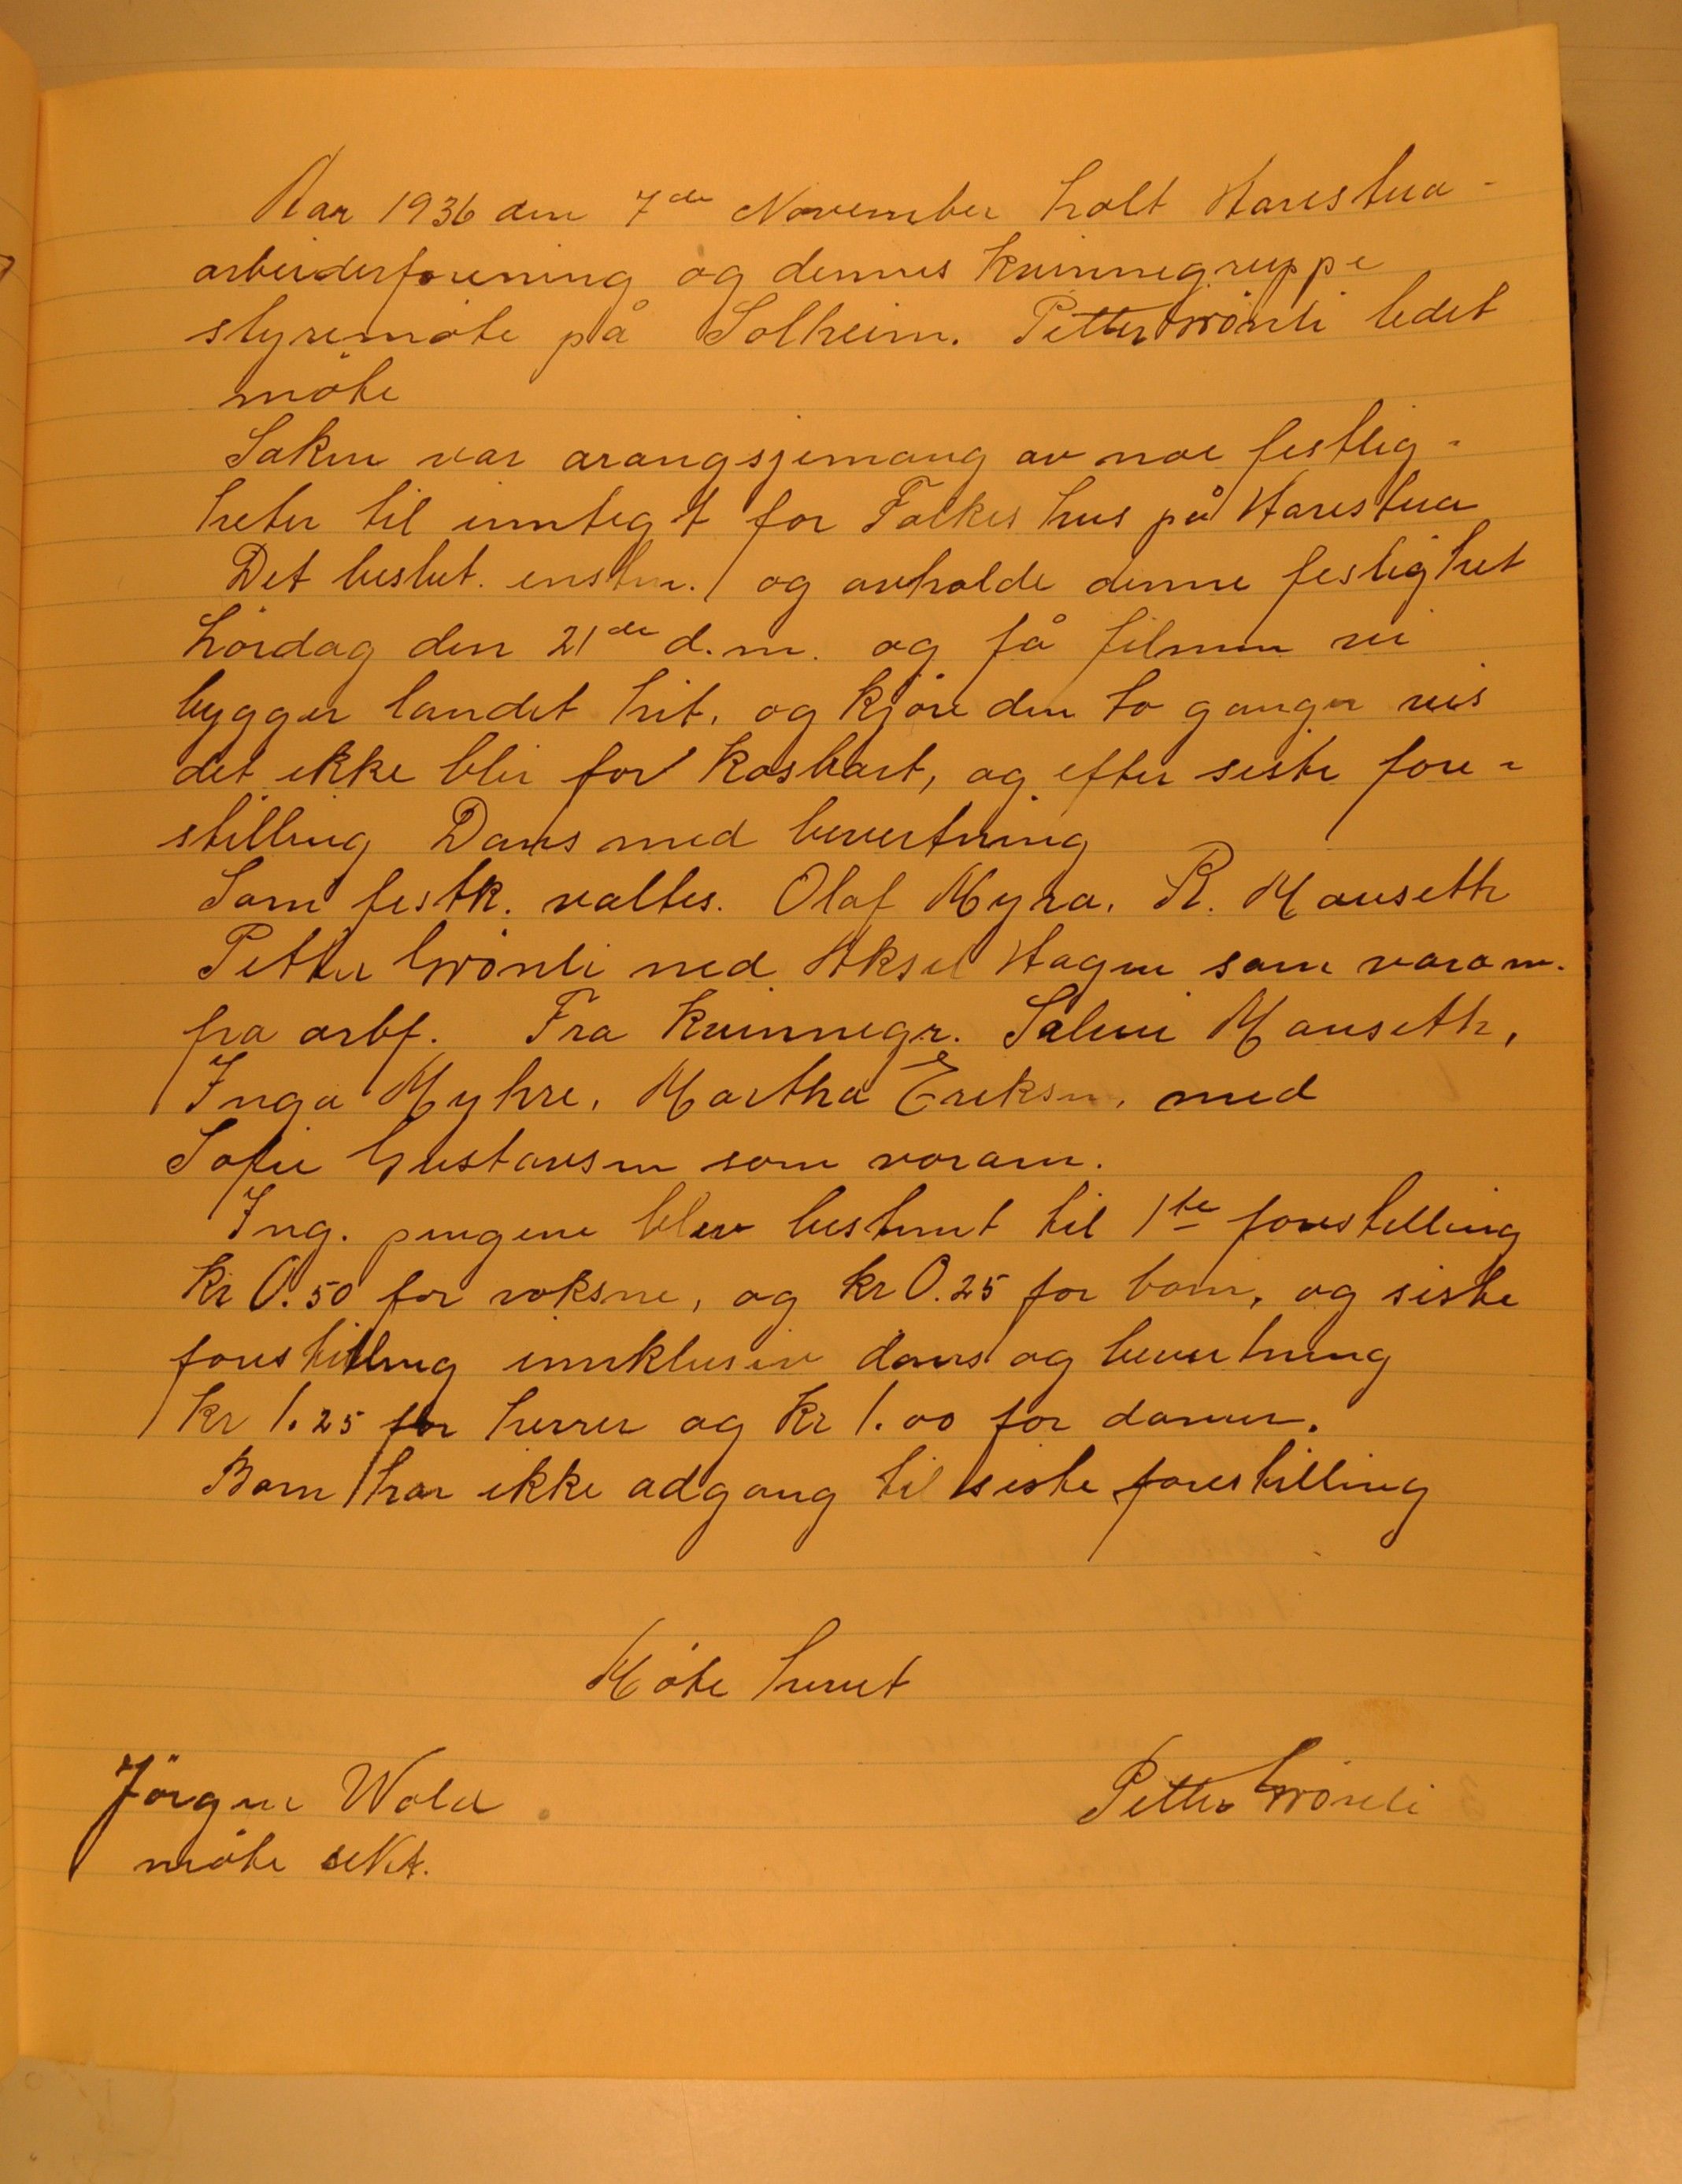 Aar 1936 den 7de November holt Harestua-
arbeiderforening og dennes kvinnegruppe
styremöte på Solheim. Petter Grönli ledet
möte
Saken var arangsjemang av noe festlig-
heter til inntegt for Folkes hus på Harestua
Det beslut. enstm. og avholde denne festlighet
Lördag den 21de d.m. og få filmen vi
bygger landet hit, og kjöre den to ganger vis
det ikke blir for kosbart, og efter siste fore-
stilling Dans med bevertning
Som festk. valtes. Olaf Myra, R. Mauseth
Petter Grönli med Aksel Hagen som varam.
fra arbf. Fra kvinnegr. Salmi Mauseth,
Inga Myhre, Martha Eriksen, med
Sofie Gustavsen som varam.
Ing. pengene blev bestemt til 1ste forestilling
kr 0.50 for voksne, og kr 0.25 for born, og siste
forestilling innklusiv dans og bevertning
kr 1.25 for herrer og kr 1.00 for damer.
Born har ikke adgang til siste forestilling
Möte hevet
Jörgen Wold Petter Grönli
möte sekt.